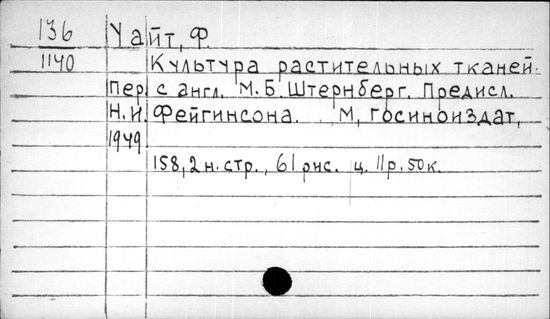 136 Уайт, Ф.
1140 Культура растительных тканей.
Пер. с англ. М.Б. Штернберг. Предисл.
Н.И. Фейгинсона. М, Госиноиздат,
1949
158, 2 н. стр., 61 рис. ц. 11 р. 50 к.